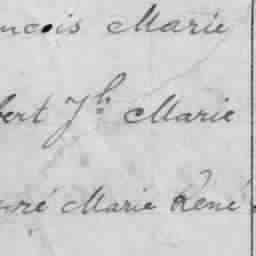 ncois Marie
bert Jh Marie
ré Marie René